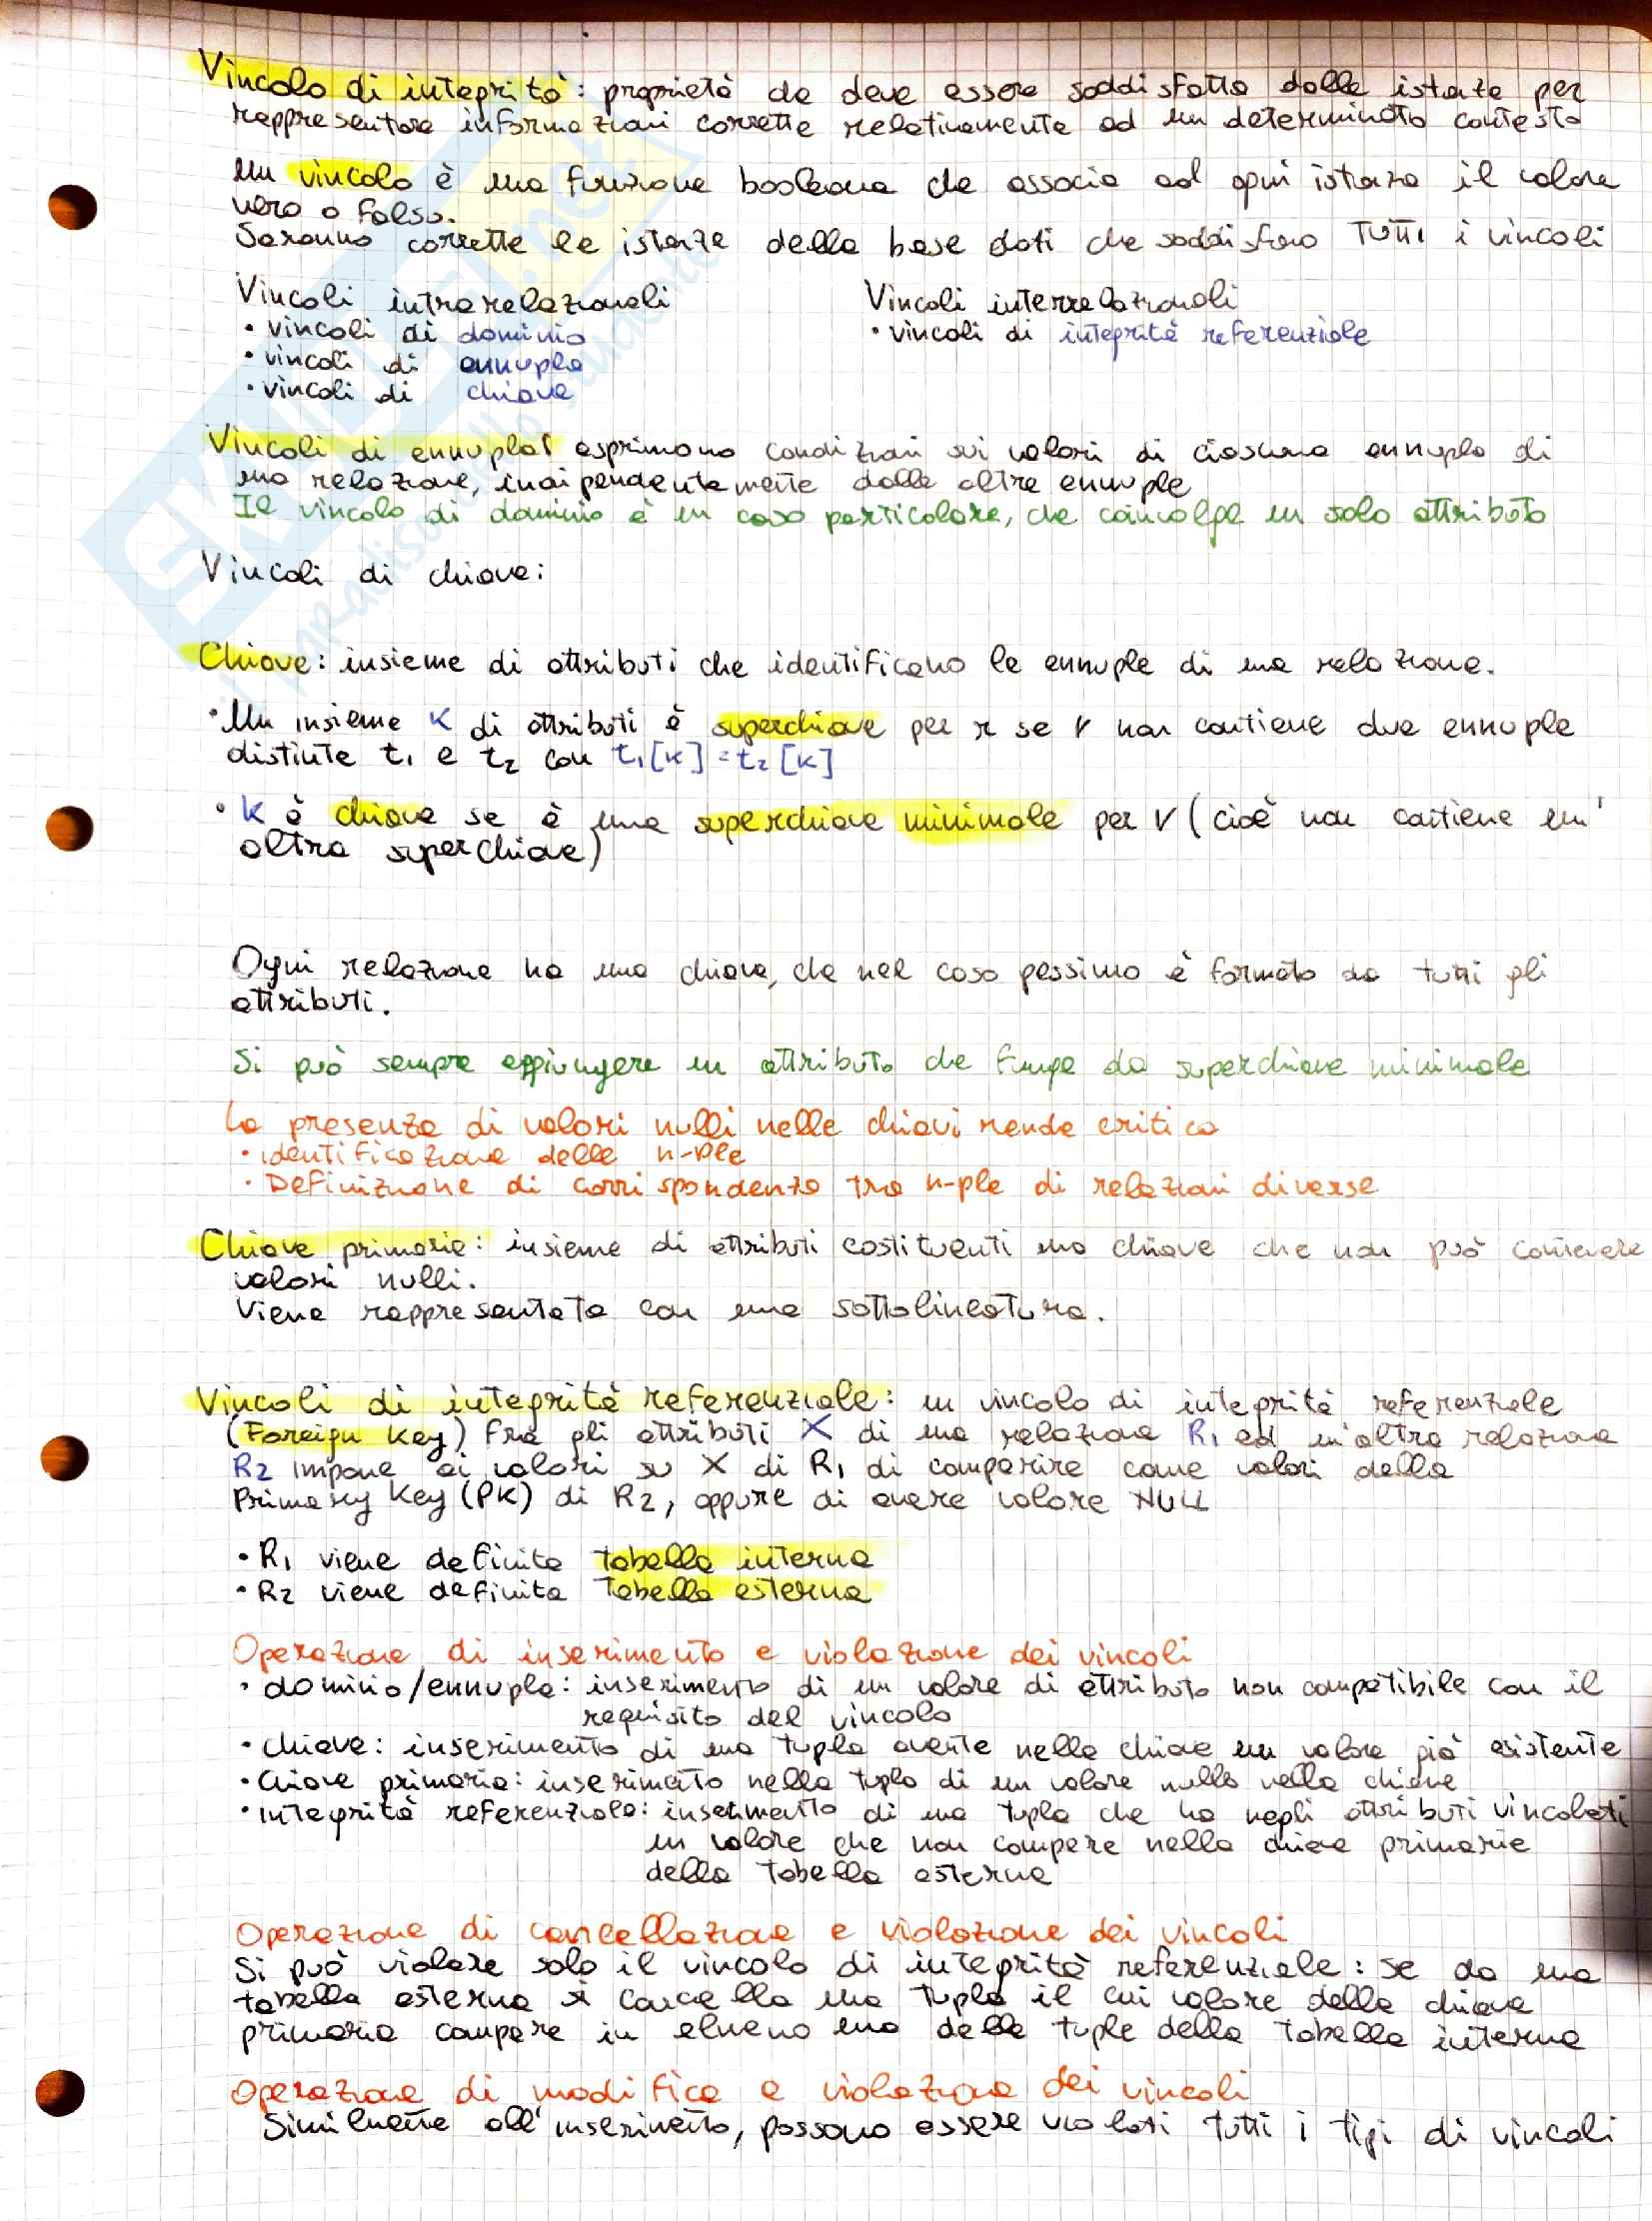 Vincolo di integrità: proprietà che deve essere soddisfatta dalle istanze per
rappresentare informazioni corrette relativamente ad un determinato contesto
Un vincolo è una funzione booleana che associa ad ogni istanza il valore
vero o falso.
Saranno corrette le istanze della base dati che soddisfano TUTTI i vincoli
Vincoli intrarelazionali
• vincoli di dominio
• vincoli di ennupla
• vincoli di chiave
Vincoli interrelazionali
• vincoli di integrità referenziale
Vincoli di ennupla: esprimono condizioni sui valori di ciascuna ennupla di
una relazione, indipendentemente dalle altre ennuple
Il vincolo di dominio è un caso particolare, che coinvolge un solo attributo
Vincoli di chiave:
Chiave: insieme di attributi che identificano le ennuple di una relazione.
• Un insieme K di attributi è superchiave per r se r non contiene due ennuple
distinte t1 e t2 con t1[K] = t2[K]
• K è chiave se è una superchiave minimale per r (cioè non contiene un'
altra superchiave)
Ogni relazione ha una chiave, che nel caso pessimo è formata da tutti gli
attributi.
Si può sempre aggiungere un attributo che funge da superchiave minimale
La presenza di valori nulli nelle chiavi rende critica
• identificazione delle n-ple
• Definizione di corrispondenza tra n-ple di relazioni diverse
Chiave primaria: insieme di attributi costituenti una chiave che non può contenere
valori nulli.
Viene rappresentata con una sottolineatura.
Vincoli di integrità referenziale: un vincolo di integrità referenziale
(Foreign Key) fra gli attributi X di una relazione R1 ed un'altra relazione
R2 impone ai valori su X di R1 di comparire come valori della
Primary Key (PK) di R2, oppure di avere valore NULL
• R1 viene definita tabella interna
• R2 viene definita tabella esterna
Operazione di inserimento e violazione dei vincoli
• dominio/ennupla: inserimento di un valore di attributo non compatibile con il
requisito del vincolo
• chiave: inserimento di una tupla avente nella chiave un valore già esistente
• Chiave primaria: inserimento nella tupla di un valore nullo nella chiave
• integrità referenziale: inserimento di una tupla che ha negli attributi vincolati
un valore che non compare nella chiave primaria
della tabella esterna
Operazione di cancellazione e violazione dei vincoli
Si può violare solo il vincolo di integrità referenziale: se da una
tabella esterna si cancella una tupla il cui valore della chiave
primaria compare in almeno una delle tuple della tabella interna
Operazione di modifica e violazione dei vincoli
Similmente all'inserimento, possono essere violati tutti i tipi di vincoli